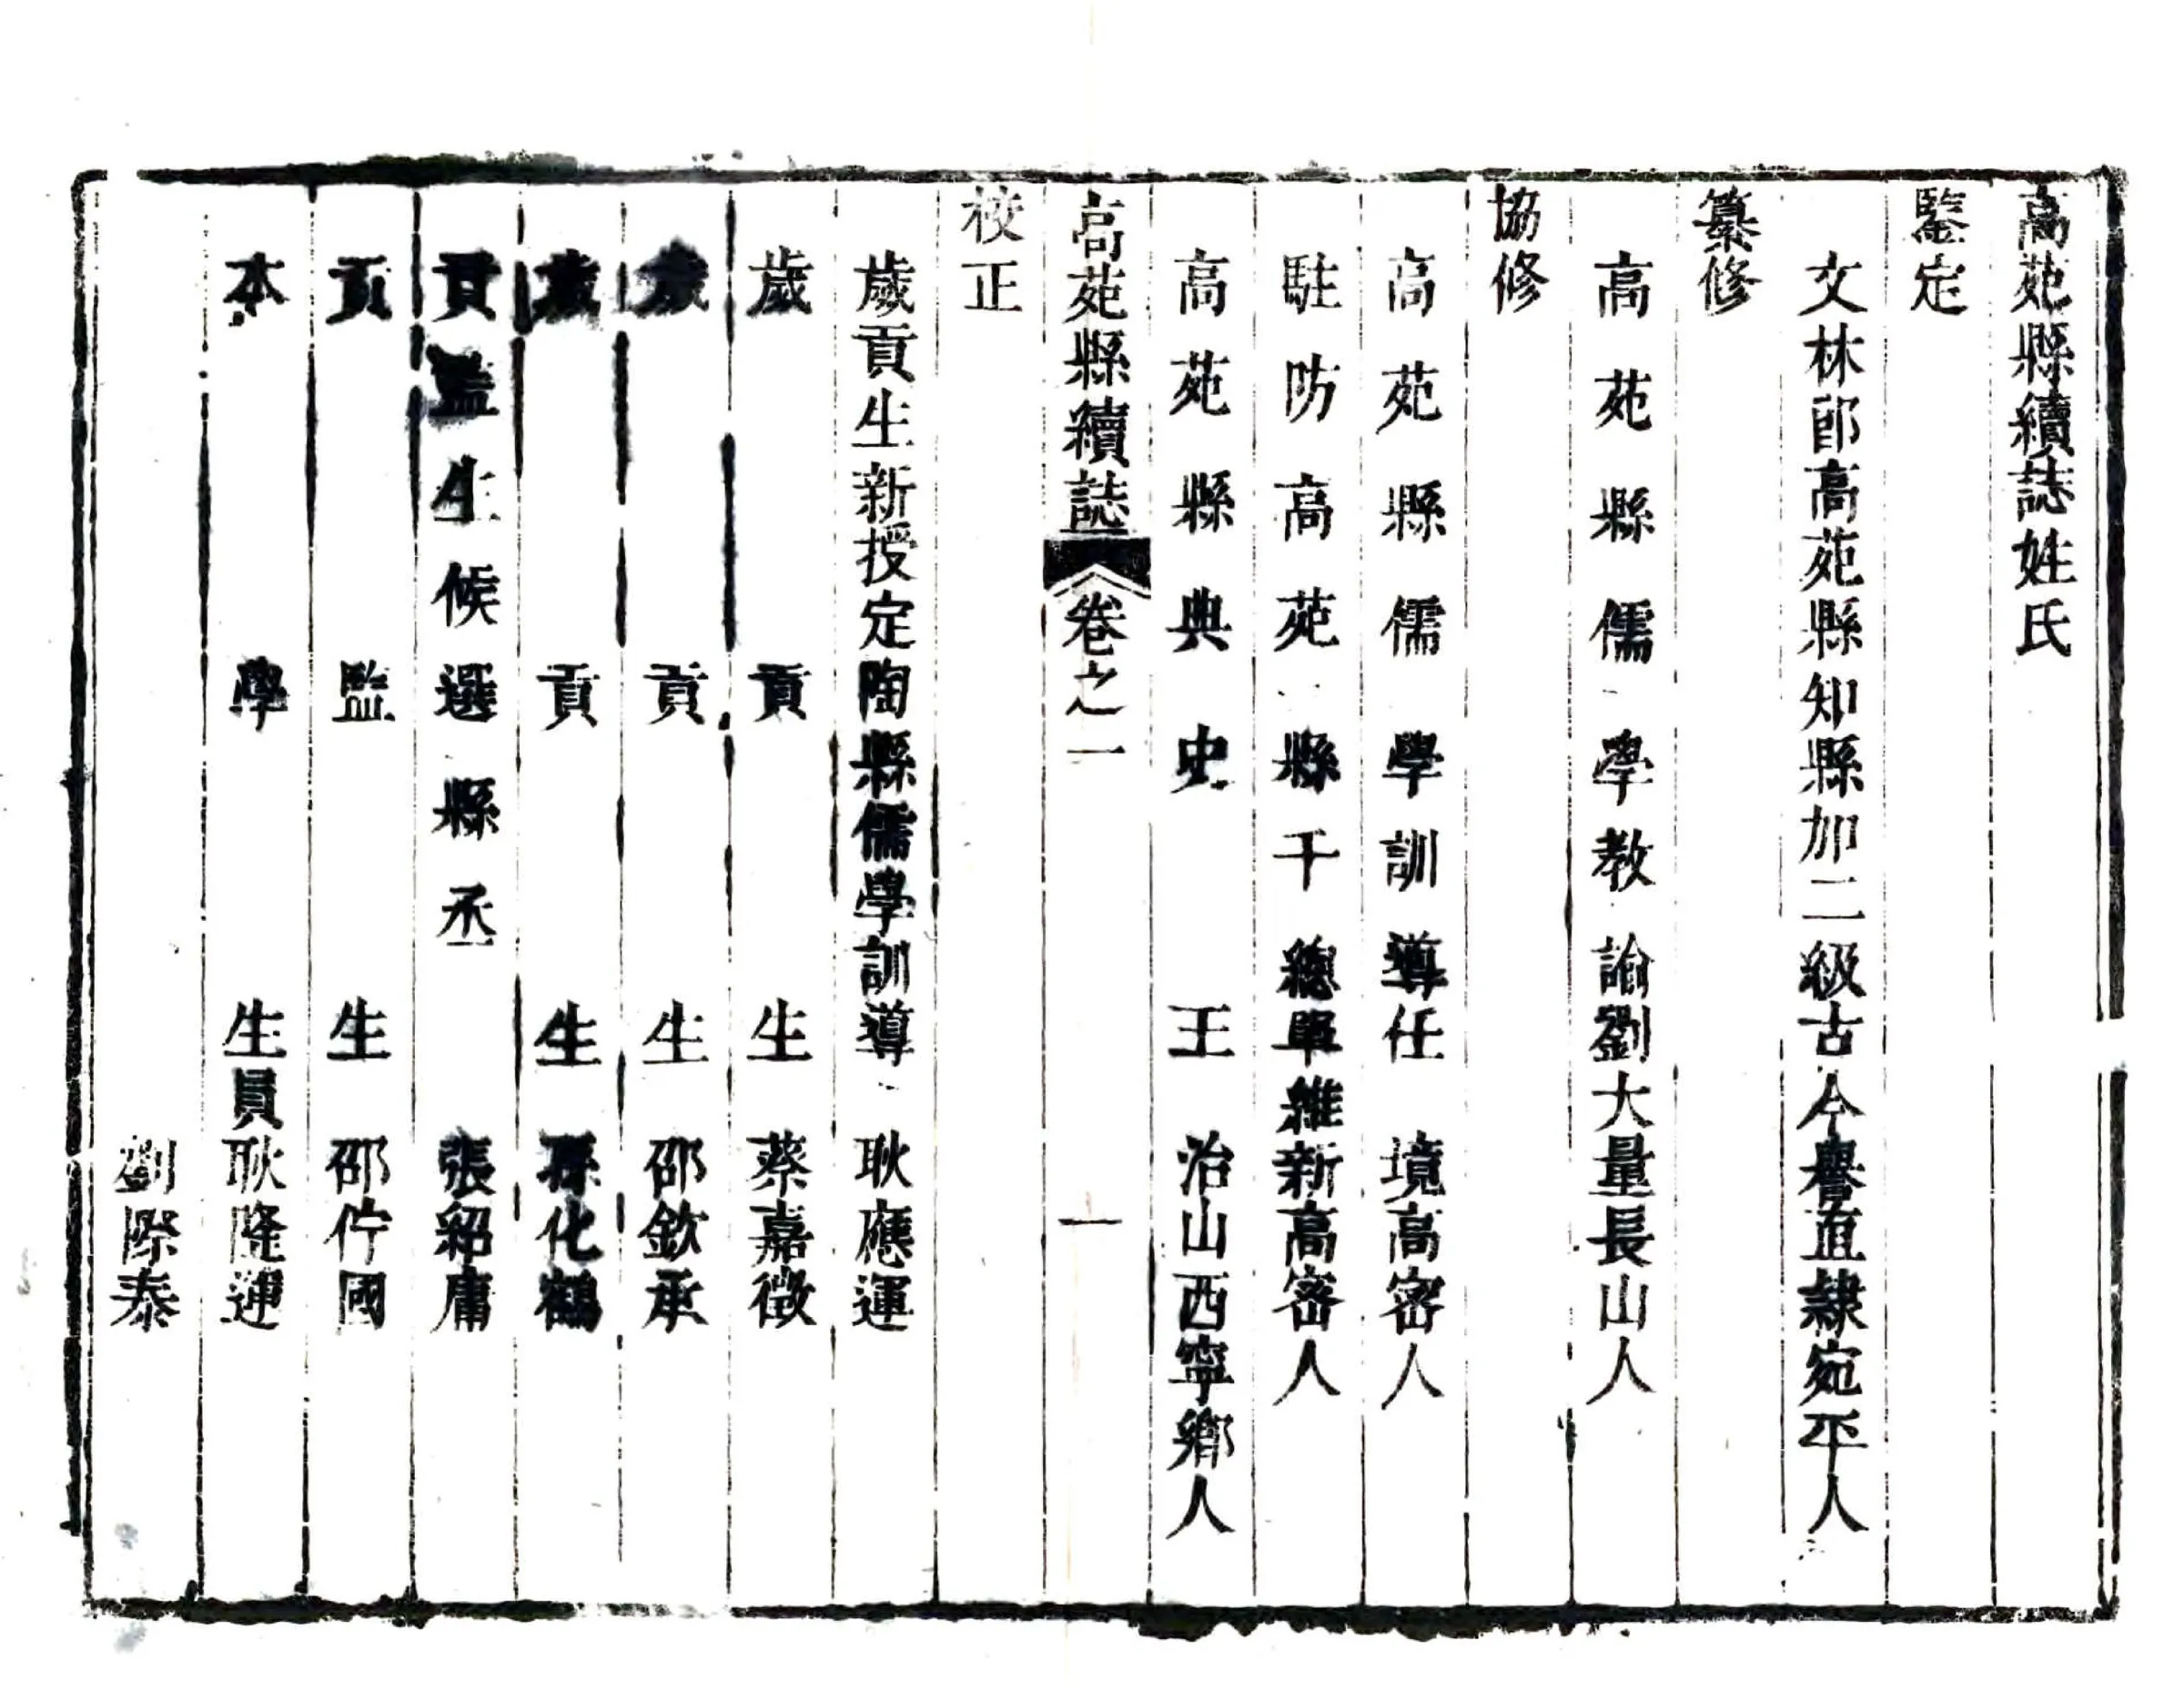 高苑縣續誌姓氏
鑒定
文林郎高苑縣知縣加二級古今譽直隸宛平人
纂修
高苑縣儒學教諭劉大量長山人
協修
高苑縣儒學訓導任境高密人
駐防高苑縣千總單維新高密人
高苑縣典史王治山西寧鄉人
高苑縣續誌 卷之一 一
校正
歲貢生新授定陶縣儒學訓導耿應運
歲貢生蔡嘉徵
歲貢生邵欽承
歲貢生孫化鶴
貢監生候選縣丞張紹庸
貢監生邵佇國
本學生員耿隆運
劉際泰